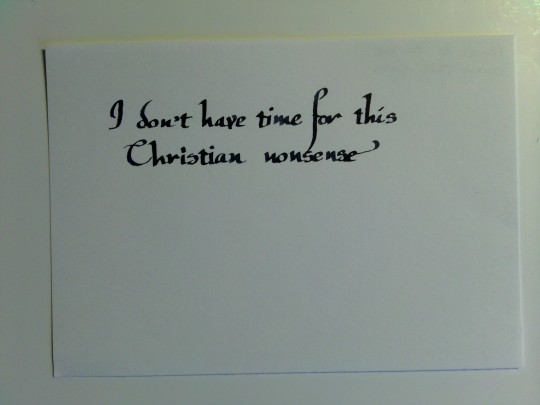 I don't have time for this
Christian nonsense